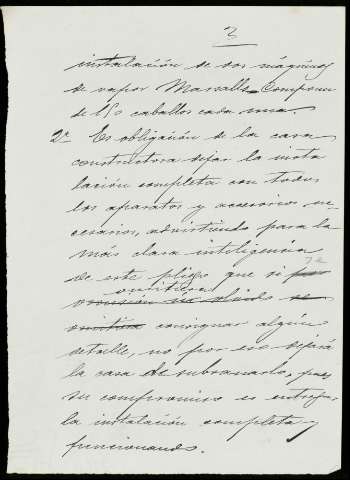 3
instalación de dos máquinas
de vapor Marsall-Compoun
de 150 caballos cada una.
2ª Es obligación de la casa
constructora dejar la insta
lación completa con todos
los aparatos y accesorios ne-
cesarios, advirtiendo para la
más clara inteligencia
de este pliego que si por
se
omitiera
provisión ú olvido se
omitiera consignar algún
detalle, no por eso dejará
la casa de subsanarlo, pues
su compromiso es entregar
la instalación completa y
funcionando.